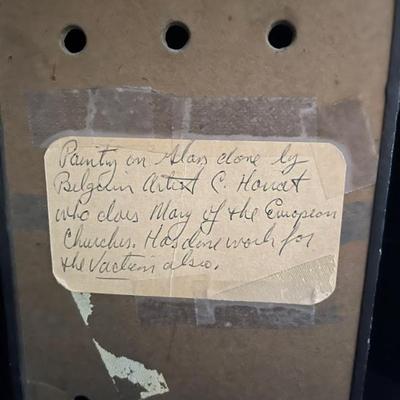 Painting on Glass done by
Belgain Artist C. Houat
who does Many of the European
Churches. Has done work for
the Vactian also.